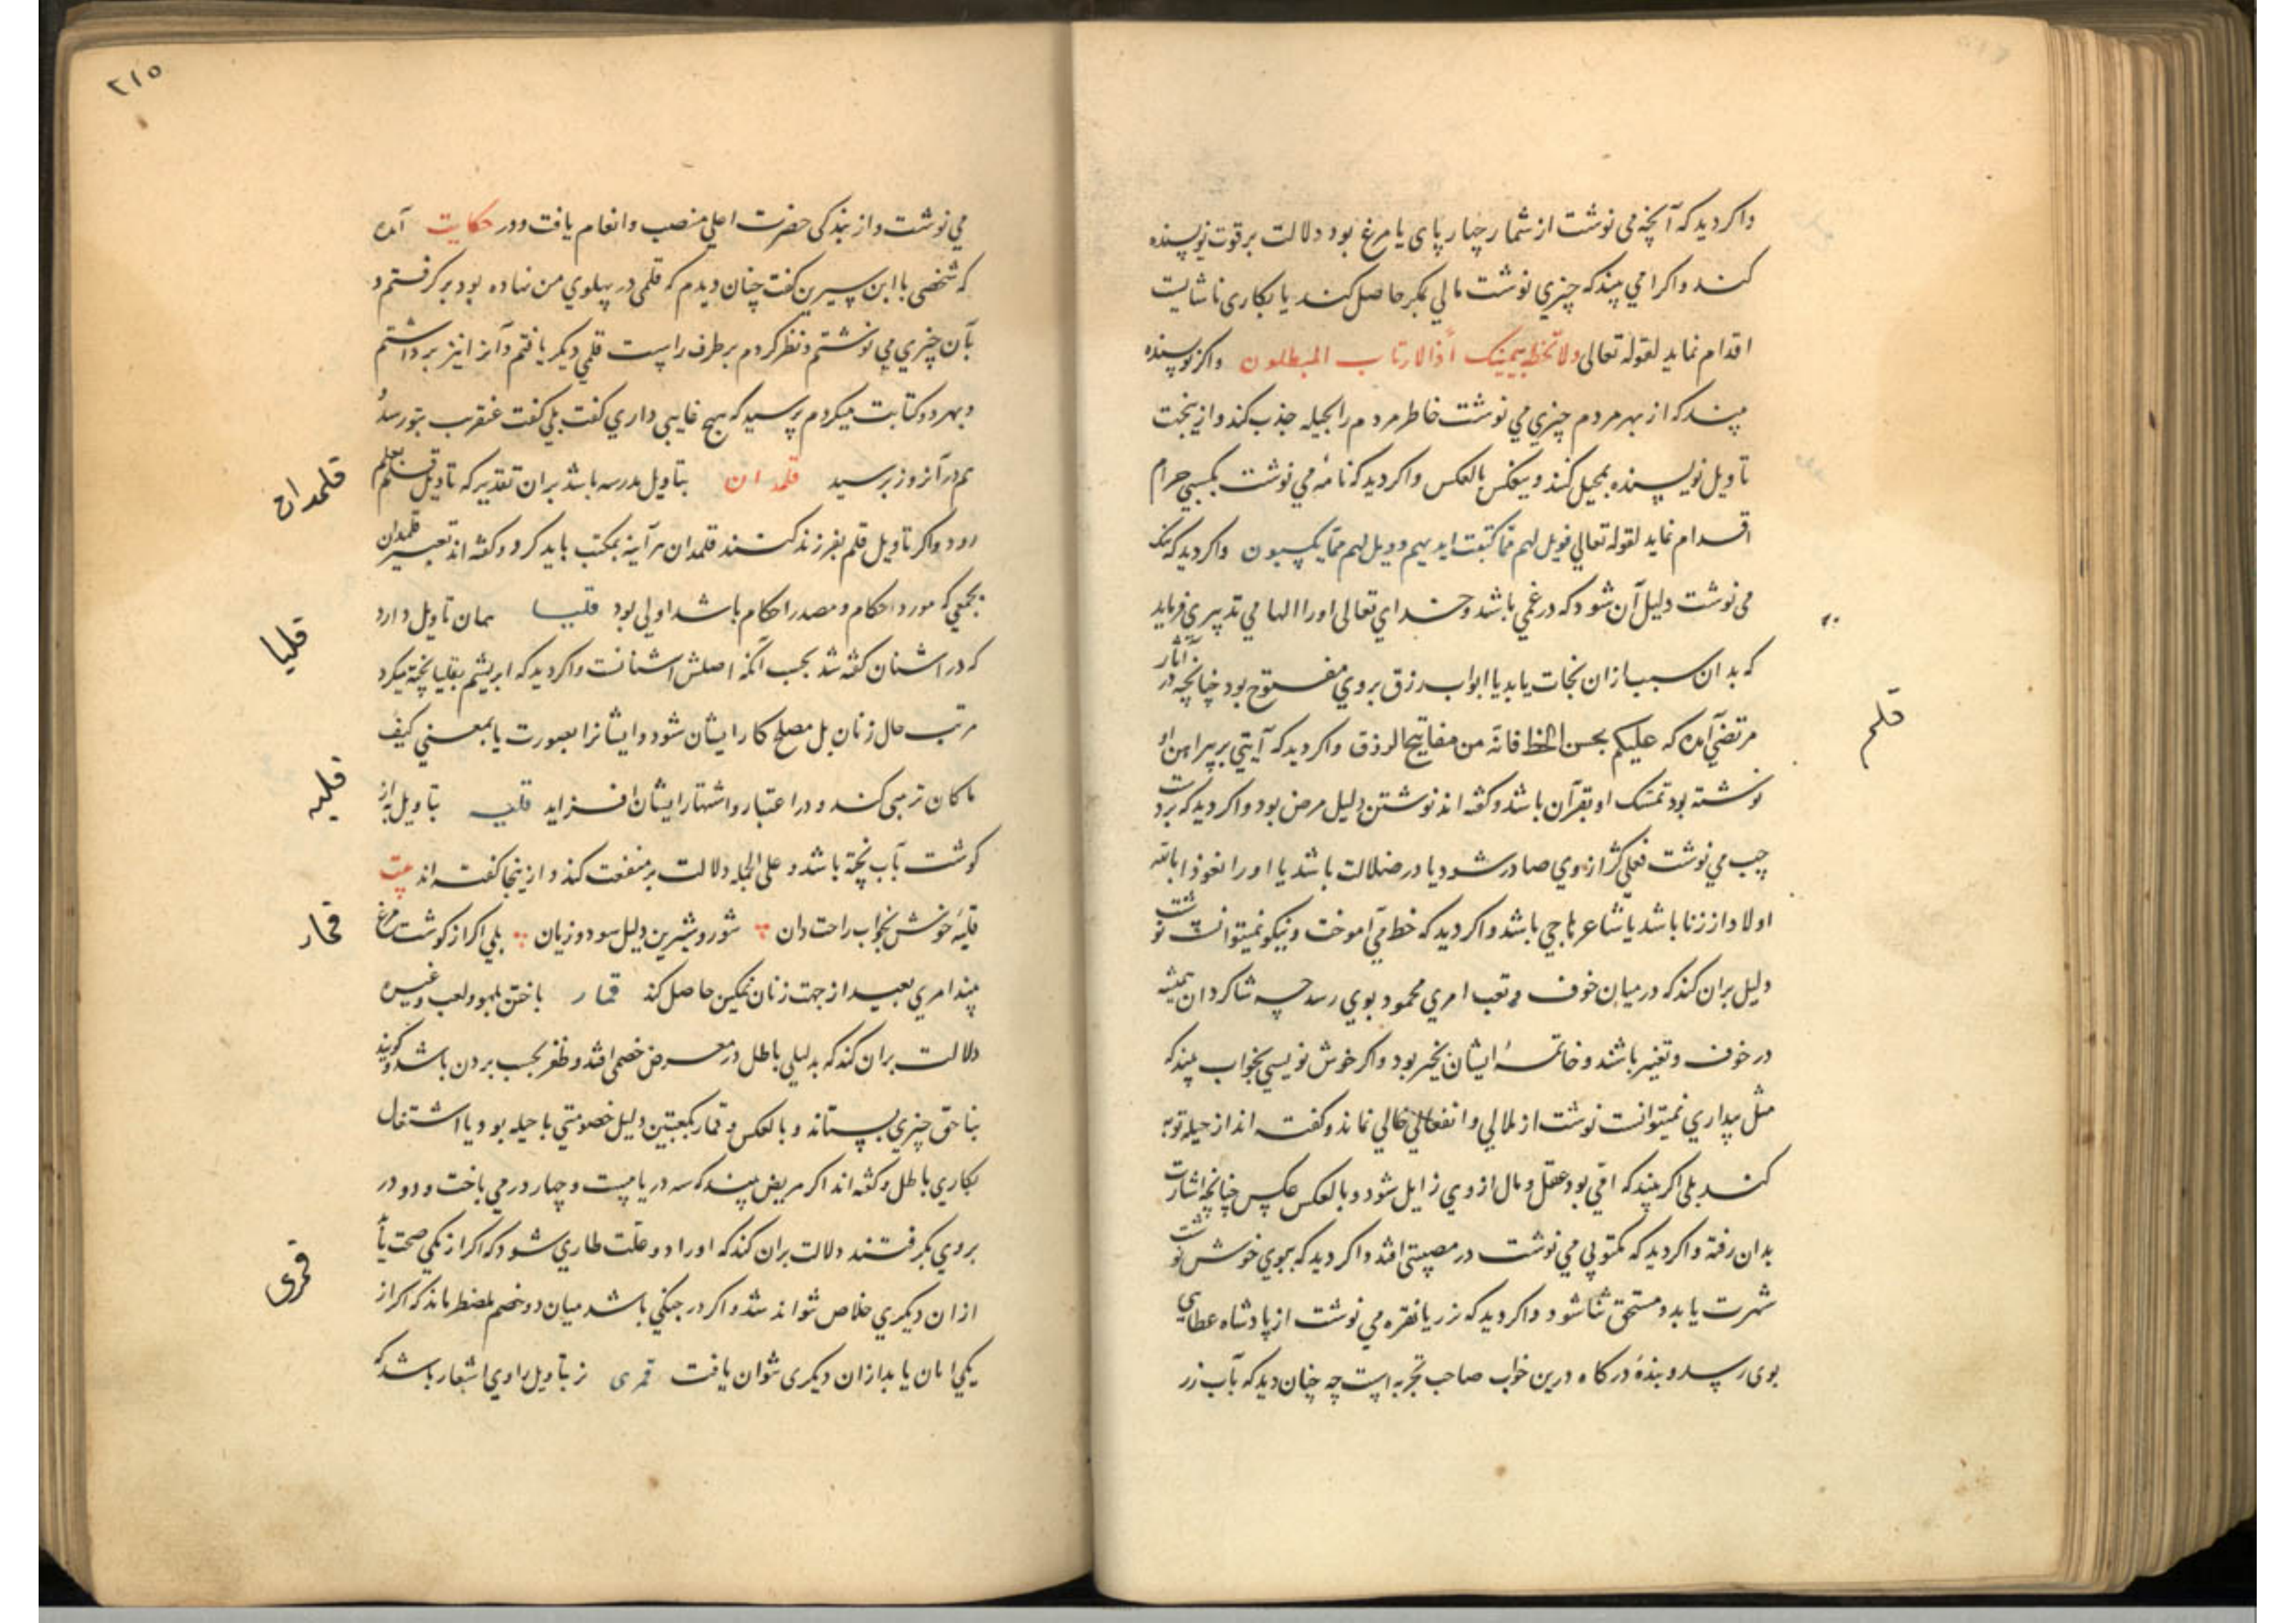 واکر دید که آنچه می نوشت از شمار چهار پای یا مرغ بود دلالت بر قوت نویسنده
کند واکر امی بیند که چیزی نوشت مالی بمکر حاصل کند یا بکاری ناشایست
اقدام نماید لقوله تعالی ولا تخطه بیمینک اذا لارتاب المبطلون واکر نویسنده
بیند که از بهر مردم چیزی می نوشت خاطر مردم را بحیله جذب کند و ازینجت
تاویل نویسنده بمحیل کنند و ینعکس بالعکس واکر دید که نامه می نوشت بکسبی حرام
اقدام نماید لقوله تعالی فویل لهم مما کتبت ایدیهم وویل لهم مما یکسبون واکر دید که
می نوشت دلیل آن شود که در غمی باشد و خدای تعالی او را الهامی تدبیری فرماید
که بدان سبب ازان نجات یابد یا ابواب رزق بروی مفتوح بود چنانچه در آثار
مرتضی آمده که علیکم بحسن الخط فانه من مفاتیح الرزق واکر دید که آیتی بر پیراهن او
نوشته بود تمسک او بقرآن باشد و کفته اند نوشتن دلیل مرض بود واکر دید که بر دست
چپ می نوشت فعلی کژ از وی صادر شود یا در ضلالت باشد یا او را نعوذ بالله
اولاد از زنا باشد یا شاعر هاجی باشد واکر دید که خط می آموخت و نیکو نمیتوانست نوشت
دلیل بران کند که درمیان خوف و تعب امری محمود بوی رسد چه شاکردان همیشه
در خوف و تغیر باشند و خاتمهٔ ایشان بخیر بود واکر خوش نویسی بخواب بیند که
مثل بیداری نمیتوانست نوشت از ملالی و انفعالی خالی نماند و کفته اند از حیله توبه
کند بلی اکر بیند که امی بود عقل و مال از وی زایل شود و بالعکس عکس چنانچه اشارت
بدان رفته واکر دید که مکتوبی می نوشت در مصیبتی افتد واکر دید که بموی خوش نوشت
شهرت یابد و مستحق ثنا شود واکر دید که بزر یا نقره می نوشت از پادشاه عطایی
بوی رسد و بندهٔ درکاه درین خواب صاحب تجربه است چه چنان دید که بآب زر
قلم
٢١٥
می نوشت و از بندکی حضرت اعلی منصب و انعام یافت و در حکایت آمده
که شخصی با ابن سیرین کفت چنان دیدم که قلمی در پهلوی من نهاده بود بر کرفتم و
بآن چیزی می نوشتم و نظر کردم بر طرف راست قلمی دیکر یافتم و آنرا نیز برداشتم
و بهر دو کتابت میکردم پرسید که هیچ غایبی داری کفت بلی کفت عنقریب بتو رسد
هم در آنروز برسید قلمدان بتاویل مدرسه باشد بران تقدیر که تاویل قلم بعلم
رود واکر تاویل قلم بفرزند کنند قلمدان هر آینه بمکتب باید کرد و کفته اند تعبیر قلمدان
بجمعی که مورد احکام و مصدر احکام باشد اولی بود قلیا همان تاویل دارد
که در اشنان کفته شد بحسب آنکه اصلش اشنانست واکر دید که ابریشم بقلیا پخته میکرد
مرتب حال زنان بل مصلح کار ایشان شود و ایشانرا بصورت یا بمعنی کیف
ما کان تربیتی کند و در اعتبار و اشتهار ایشان افزاید قلیه بتاویل به از
کوشت بآب پخته باشد و علی الجمله دلالت بر منفعت کند و ازینجا کفته اند بیت
قلیهٔ خوش بخواب راحت دان شور و شیرین دلیل سود و زیان بلی اکر از کوشت مرغ
بیند امری بعید از جهت زنان ممکین حاصل کند قمار باختن بلهو و لعب و غیره
دلالت بران کند که بدلیلی باطل در معرض خصمی افتد و ظفر بحسب بردن باشد و کویند
بناحق چیزی بستاند و بالعکس و قمار بکعبتین دلیل خصومتی با حیله بود یا اشتغال
بکاری باطل و کفته اند اکر مریض بیند که سه در یا بیست و چهار در می باخت و دو در
بروی بکرفتند دلالت بران کند که او را دو علت طاری شود که اکر از یکی صحت یابد
از ان دیکری خلاص نتواند شد واکر در جنکی باشد میان دو خصم مضطر ماند که اکر از
یکی امان یابد از ان دیکری نتوان یافت قمری نر بتاویل راوی اشعار باشد که
قلمدان
قلیا
قلیه
قمار
قمری